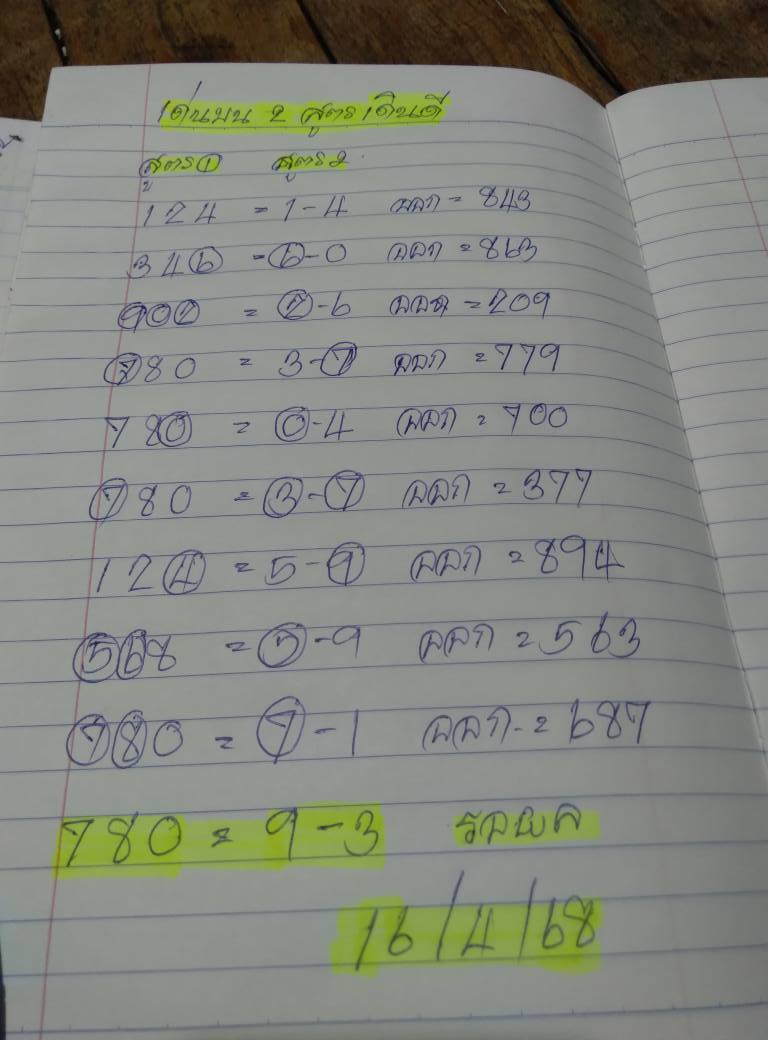 เด่นบน 2 สูตรเดินดี
สูตร1 สูตร2
124 = 1-4 ออก = 843
346 = 6-0 ออก = 863
902 = 2-6 ออก = 209
780 = 3-7 ออก = 779
780 = 0-4 ออก = 700
780 = 3-7 ออก = 377
124 = 5-9 ออก = 894
568 = 5-9 ออก = 563
780 = 7-1 ออก = 687
780 = 9-3 รอผล
16/4/68